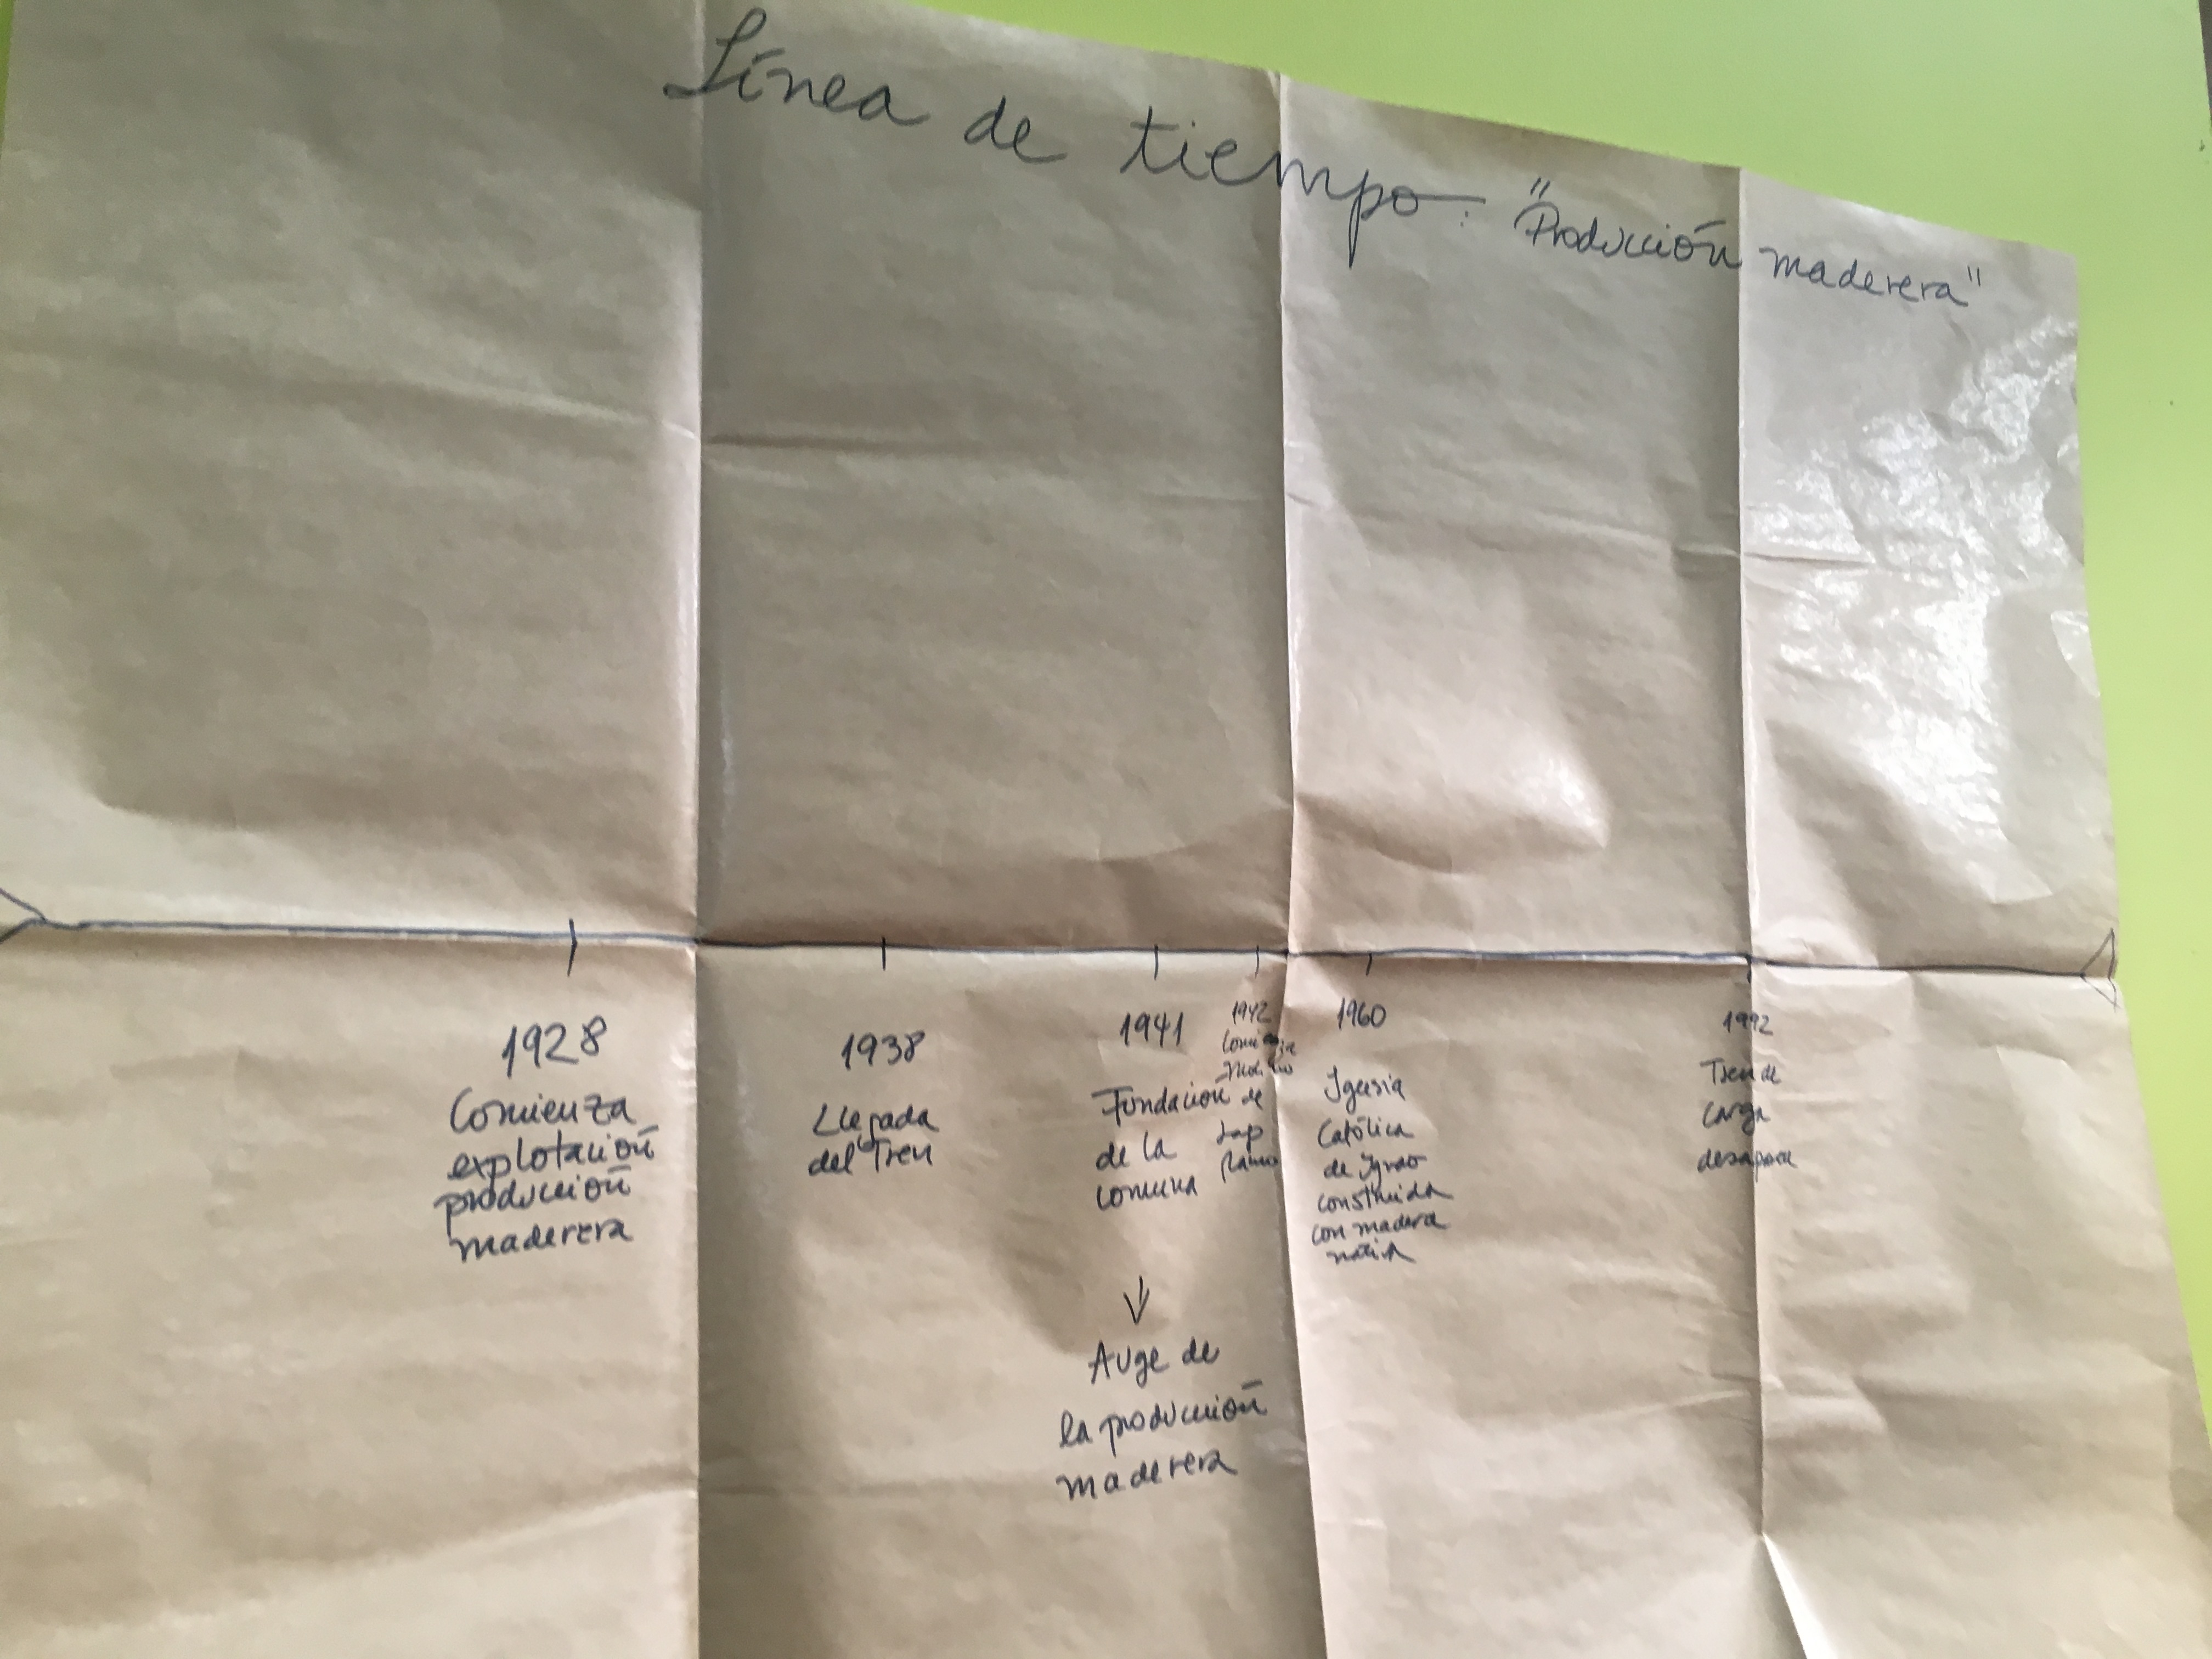 Línea de tiempo: "Producción maderera"
1928
Comienza
explotación
producción
maderera
1938
Llegada
del Tren
1941
Fundación
de la
comuna
↓
Auge de
la producción
maderera
1942
de
1960
Iglesia
Católica
de
construida
con madera
nativa
1992
Tren de
carga
desaparece